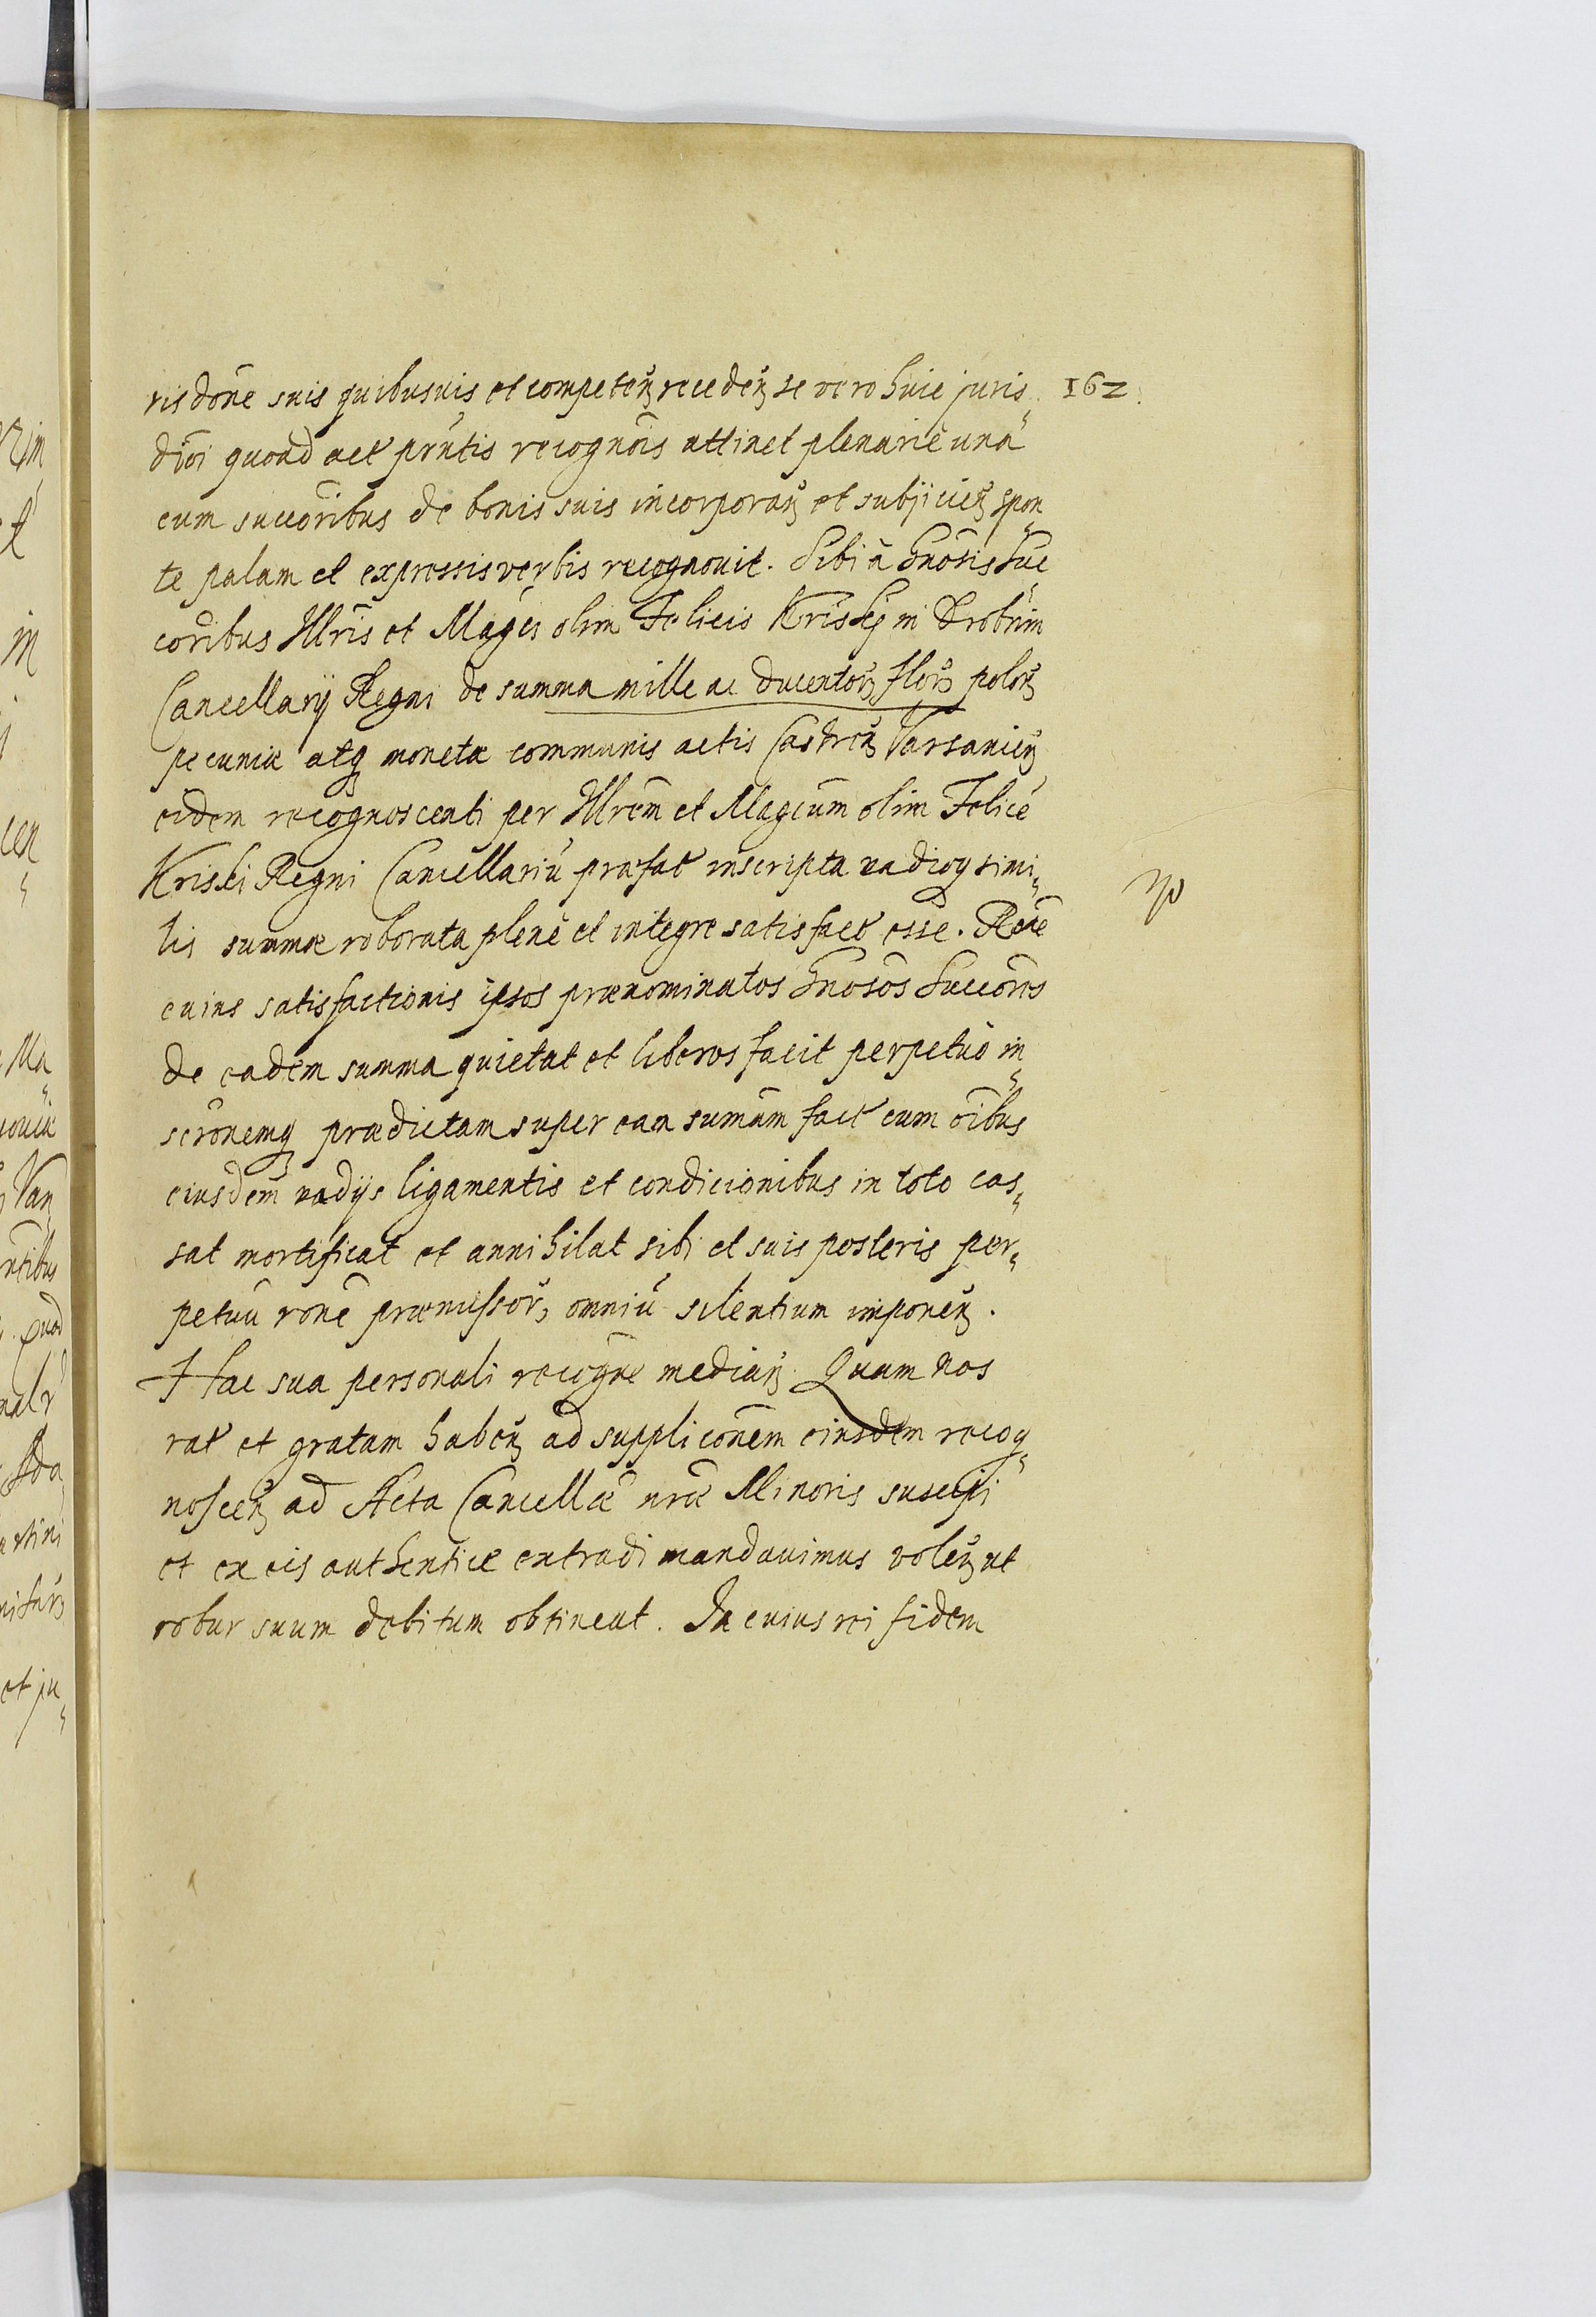 risdone suis quibusuis et competen receden se vero huic juris„ 162.
dioi quoad act prntis recognois attinet plenarie una
cum succoribus de bonis suis incorporan et subjicien spon„
te palam et expressis verbis recognouit. Sibi à Gnosis suc„
coribus Illris et Magci olim Felicis Kriski in Drobnin
Cancellarij Regni de summa mille ac ducentor flor polon
pecuniæ atq monetæ communis actis Castren Varsauien
eidem recognoscenti per Illrem et Magcum olim Felicé
Kriski Regni Cancellariú præfat inscripta vadioq simi„
lis summæ roborata plenè et integre satisfact esse. Rone
cuius satisfactionis ipsos prænominatos Gnosos Succores
de eadem summa quietat et liberos facit perpetuò in„
scronemq prædictam super eam sumam fact cum oibus
eiusdem vadijs ligamentis et condicionibus in toto cas„
sat mortificat et annihilat sibi et suis posteris per„
petuú rone præmissor, omniú silentium imponen.
Hac sua personali recogne median. Quam nos
rat et gratam haben ad suppliconém eiusdem recog„
noscen ad Acta Cancellæ nræ Minoris suscipi
et ex eis authenticè extradi mandauimus volen ut
robur suum debitum obtineat. In cuius rei fidem